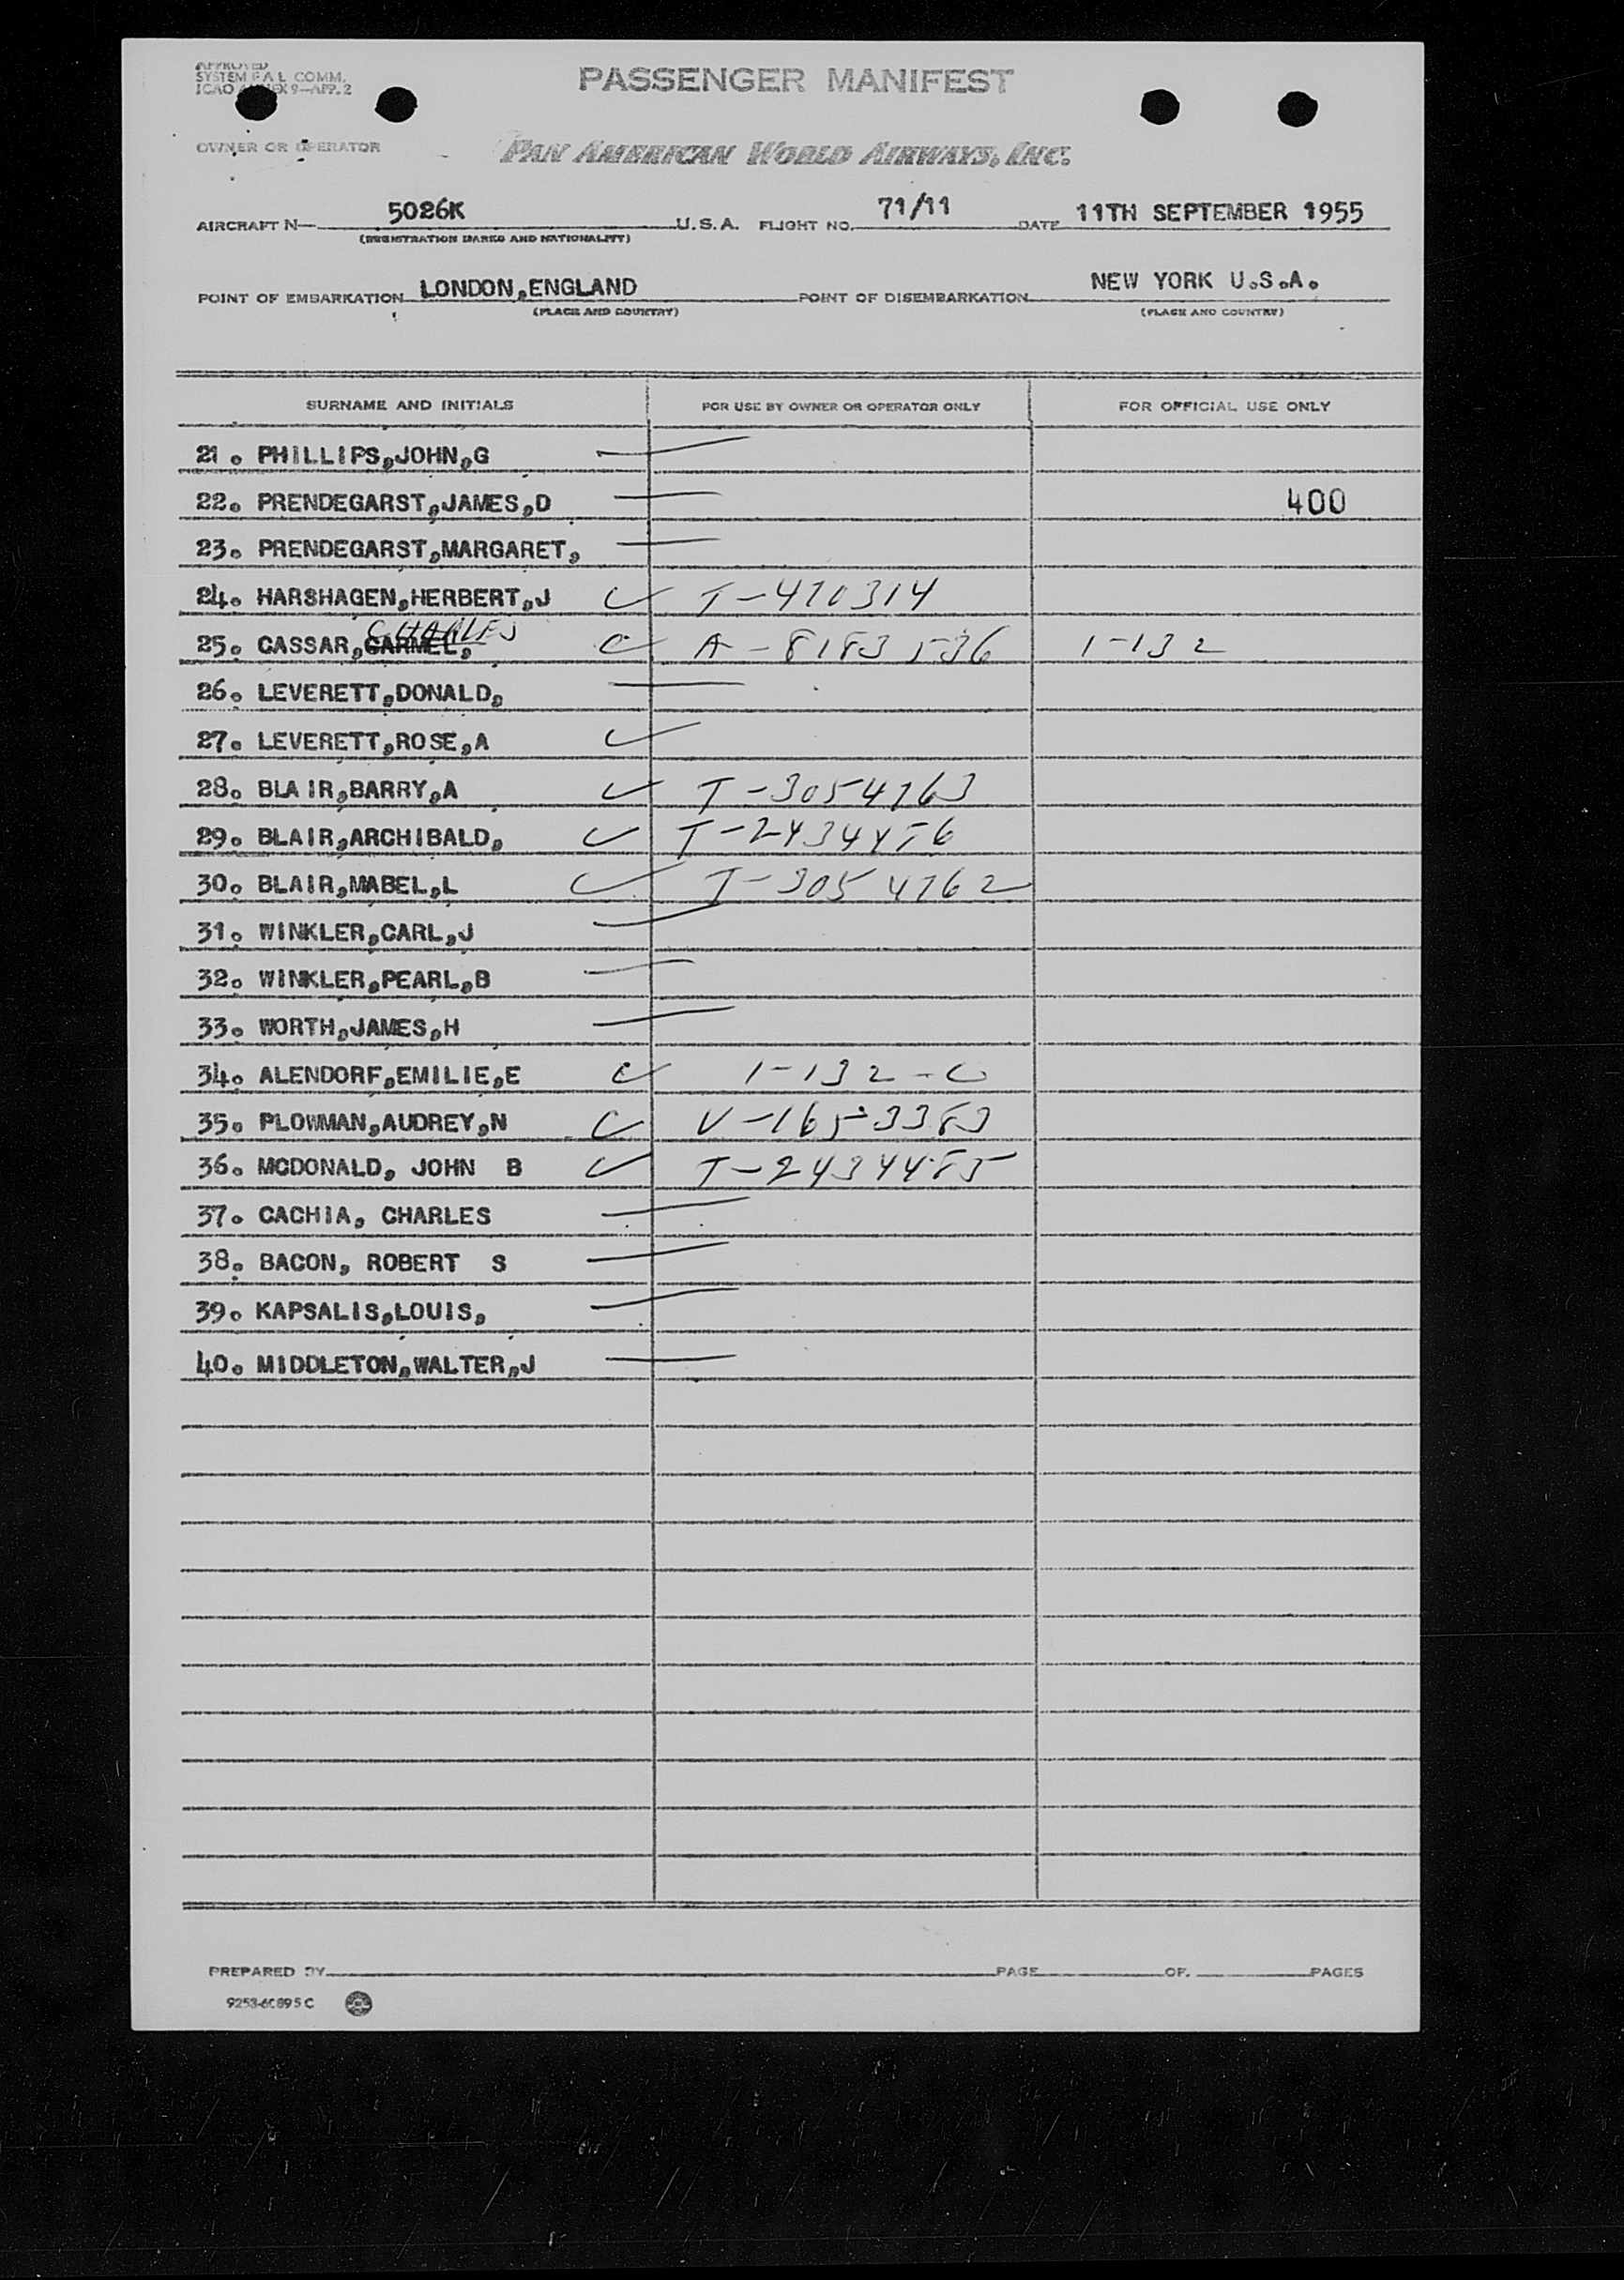 APPROVED
SYSTEM F A L COMM.
ICAO ANNEX 9—APP. 2
PASSENGER MANIFEST
OWNER OR OPERATOR
PAN AMERICAN WORLD AIRWAYS, INC.
AIRCRAFT N— 5026K U.S.A. FLIGHT NO. 71/11 DATE 11TH SEPTEMBER 1955
(REGISTRATION MARKS AND NATIONALITY)
POINT OF EMBARKATION LONDON,ENGLAND POINT OF DISEMBARKATION NEW YORK U.S.A.
(PLACE AND COUNTRY) (PLACE AND COUNTRY)
SURNAME AND INITIALS FOR USE BY OWNER OR OPERATOR ONLY FOR OFFICIAL USE ONLY
21. PHILLIPS,JOHN,G
22. PRENDEGARST,JAMES,D 400
23. PRENDEGARST,MARGARET,
24. HARSHAGEN,HERBERT,J T-470314
CHARLES
25. CASSAR,CARMEL, A-8183536 1-132
26. LEVERETT,DONALD,
27. LEVERETT,ROSE,A
28. BLAIR,BARRY,A T-3054763
29. BLAIR,ARCHIBALD, T-2434456
30. BLAIR,MABEL,L T-3054762
31. WINKLER,CARL,J
32. WINKLER,PEARL,B
33. WORTH,JAMES,H
34. ALENDORF,EMILIE,E 1-132-C
35. PLOWMAN,AUDREY,N V-1653383
36. MCDONALD, JOHN B T-2434485
37. CACHIA, CHARLES
38. BACON, ROBERT S
39. KAPSALIS,LOUIS,
40. MIDDLETON,WALTER,J
PREPARED BY PAGE OF. PAGES
9253-6C895 C